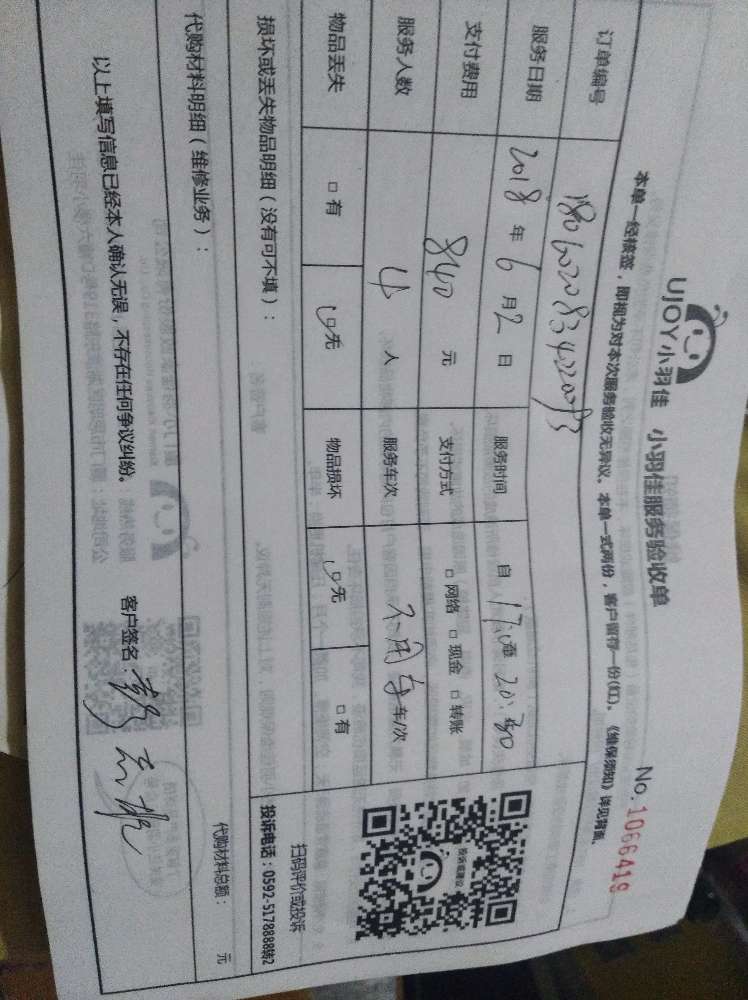 UJOY小羽佳 小羽佳服务验收单
No. 1066419
本单一经核签，即视为对本次服务验收无异议。本单一式两份，客户留存一份(红)。《维保须知》详见背面。
订单编号
服务日期 2018年6月2日 服务时间 自 17:00至 20:30
支付费用 840 元 支付方式 □网络 □现金 □转账
服务人数 4 人 服务车次 不用车 车/次
物品丢失 □有 □无 物品损坏 □无 □有
损坏或丢失物品明细（没有可不填）：
投诉或建议
扫码评价或投诉
投诉电话：0592-5178888转2
代购材料明细（维修业务）：
代购材料总额： 元
以上填写信息已经本人确认无误，不存在任何争议纠纷。 客户签名：